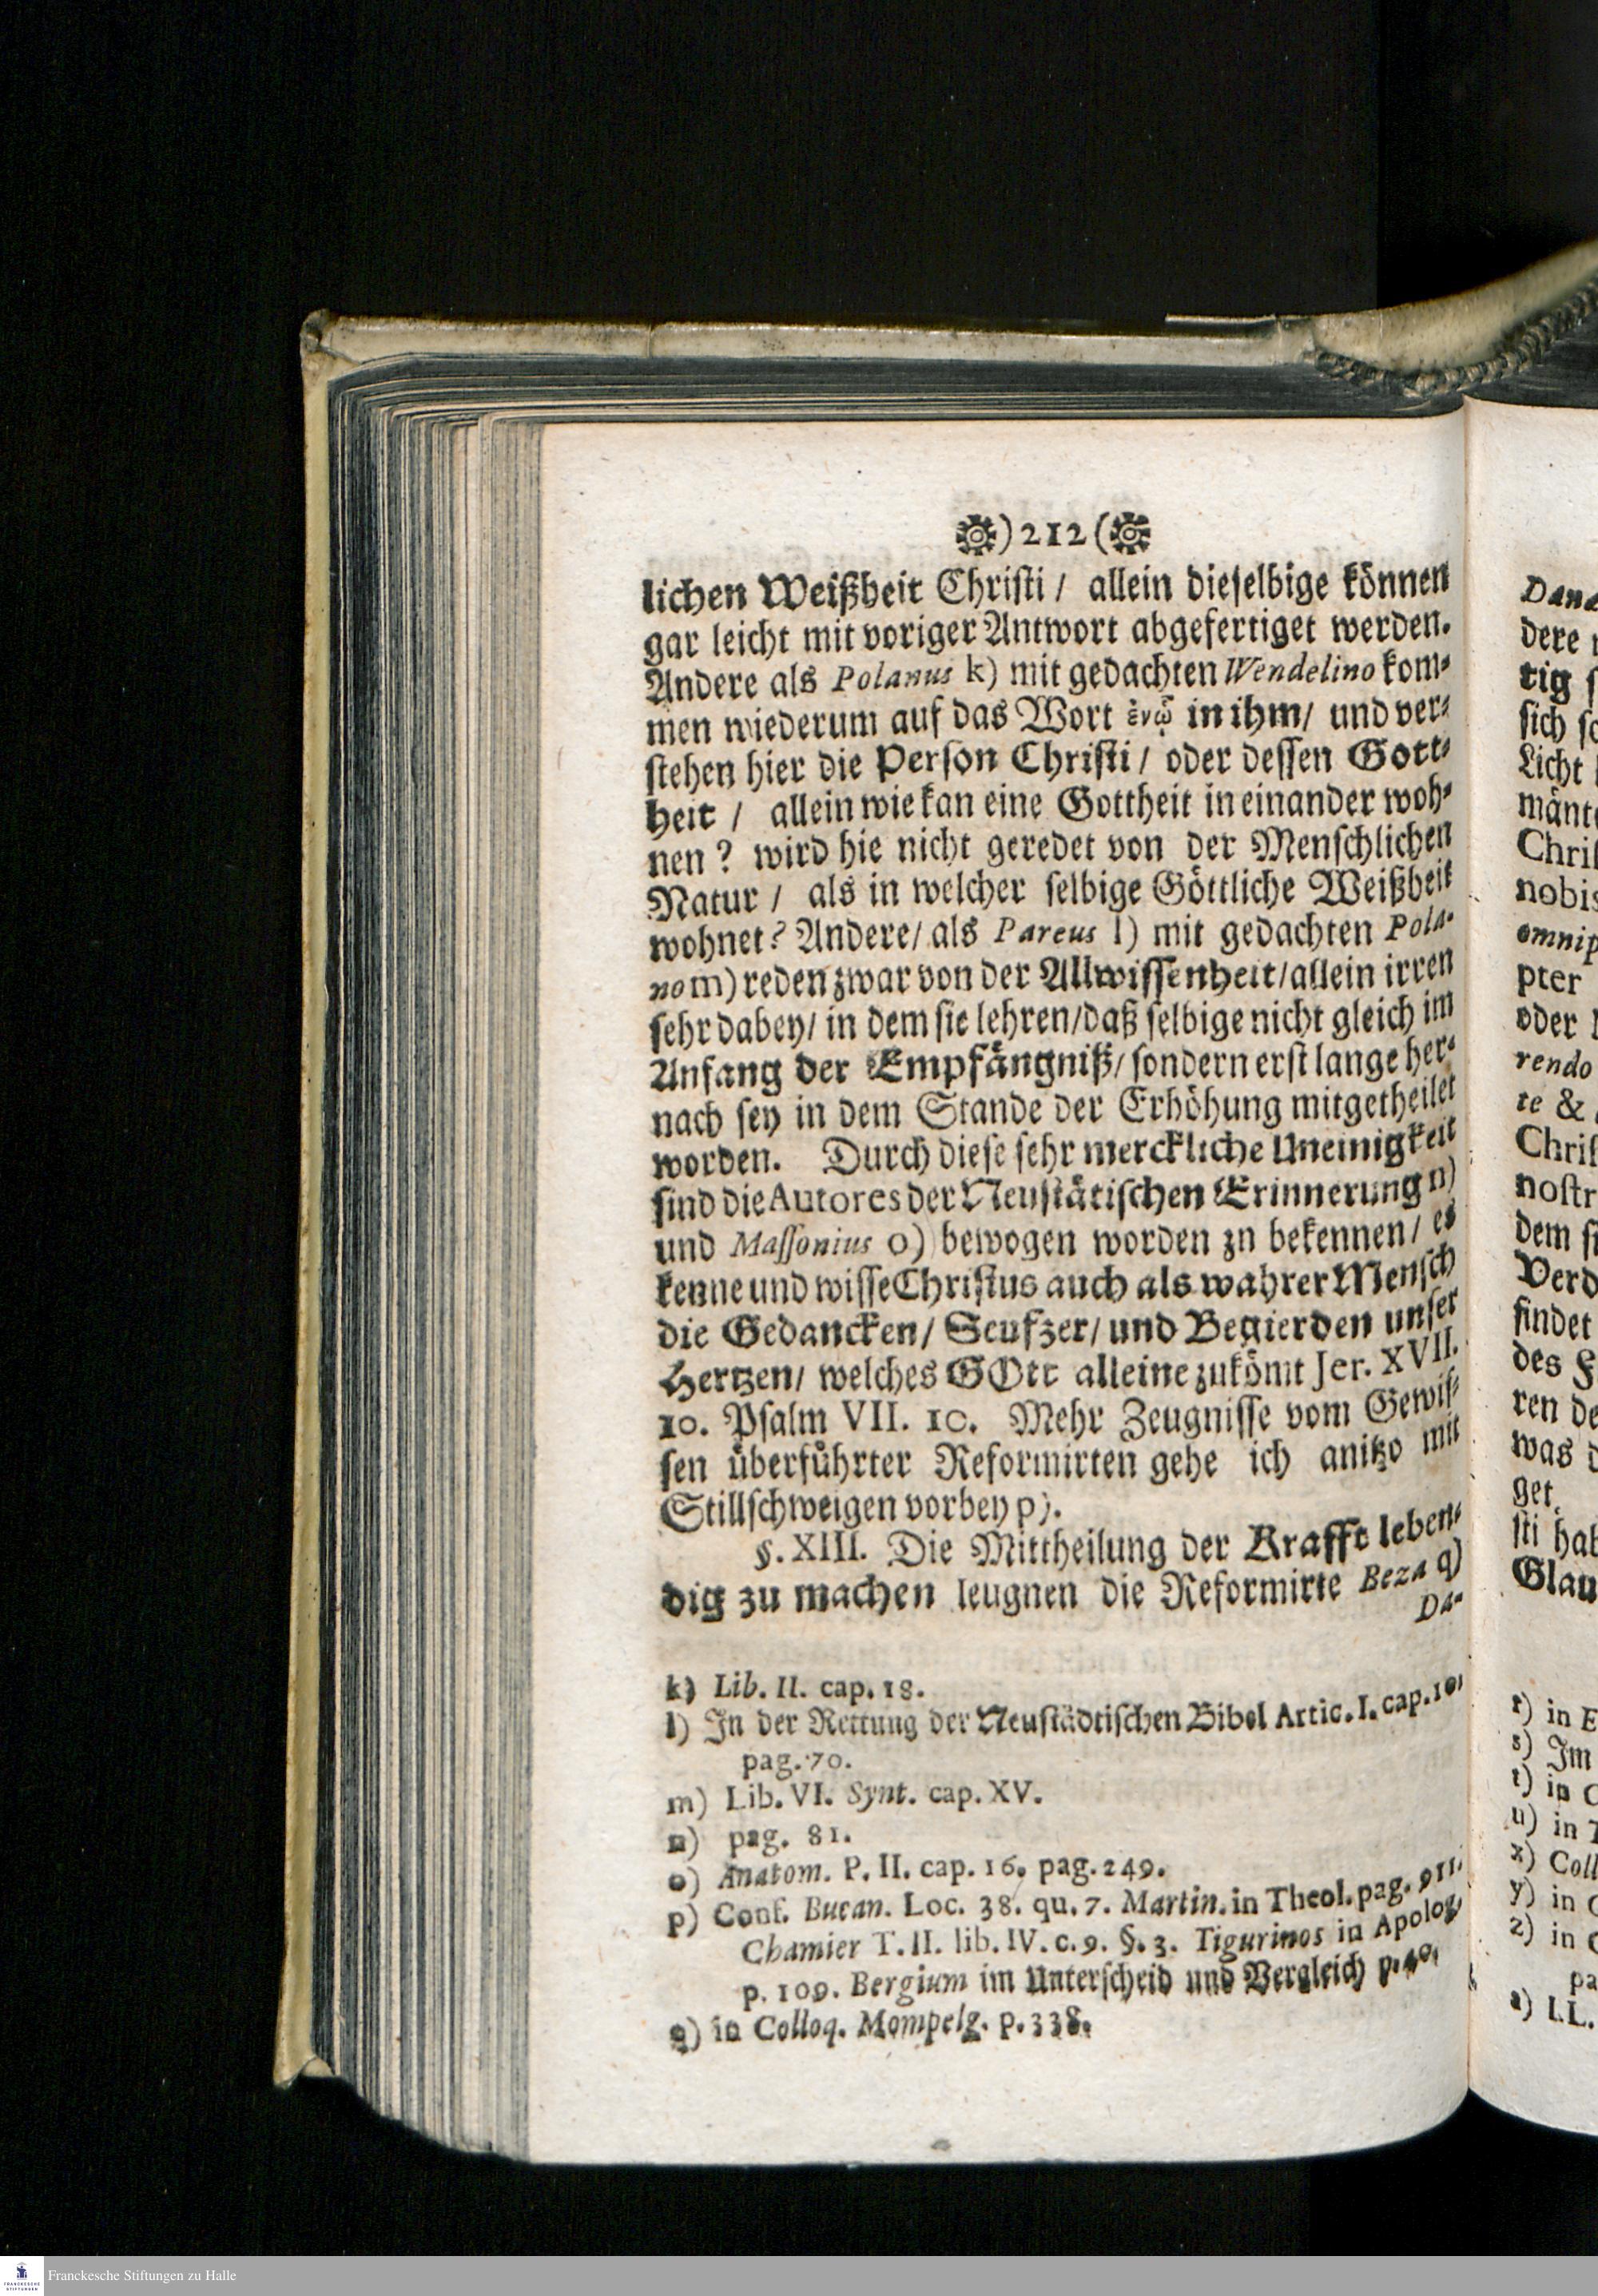 )212(
lichen Weißheit Christi / allein dieselbige können
gar leicht mit voriger Antwort abgefertiget werden.
Andere als Polanus k) mit gedachten Wendelino kom-
men wiederum auf das Wort ἐνῷ in ihm / und ver-
stehen hier die Person Christi / oder dessen Gott-
heit / allein wie kan eine Gottheit in einander woh-
nen ? wird hie nicht geredet von der Menschlichen
Natur / als in welcher selbige Göttliche Weißheit
wohnet? Andere / als Pareus l) mit gedachten Pola-
no m) reden zwar von der Allwissenheit / allein irren
sehr dabey / in dem sie lehren / daß selbige nicht gleich im
Anfang der Empfängniß / sondern erst lange her-
nach sey in dem Stande der Erhöhung mitgetheilet
worden. Durch diese sehr merckliche Uneinigkeit
sind die Autores der Neustätischen Erinnerung n)
und Massonius o) bewogen worden zu bekennen / es
kenne und wisse Christus auch als wahrer Mensch
die Gedancken / Seufzer / und Begierden unser
Hertzen / welches GOtt alleine zukömt Jer. XVII.
10. Psalm VII. 10. Mehr Zeugnisse vom Gewis-
sen überführter Reformirten gehe ich anitzo mit
Stillschweigen vorbey p).
§. XIII. Die Mittheilung der Krafft leben-
dig zu machen leugnen die Reformirte Beza q)
Da-
k) Lib. II. cap. 18.
l) In der Rettung der Neustädtischen Bibel Artic. I. cap. 10.
pag. 70.
m) Lib. VI. Synt. cap. XV.
n) pag. 81.
o) Anatom. P. II. cap. 16. pag. 249.
p) Conf. Bucan. Loc. 38. qu. 7. Martin. in Theol. pag. 911.
Chamier T. II. lib. IV. c. 9. §. 3. Tigurinos in Apolog.
p. 109. Bergium im Unterscheid und Vergleich p. 40.
q) in Colloq. Mompelg. p. 338.
Dana
dere
tig
sich
Licht
mänt
Chris
nobis
omnip
pter
oder
rendo
te &
Chris
nostr
dem
Verd
findet
des
ren de
was
get.
sti hab
Glau
r) in E
s) Im
t) in C
u) in
x) Coll
y) in
z) in
pa
a) l.L.
FRANCKESCHE
STIFTUNGEN
Franckesche Stiftungen zu Halle